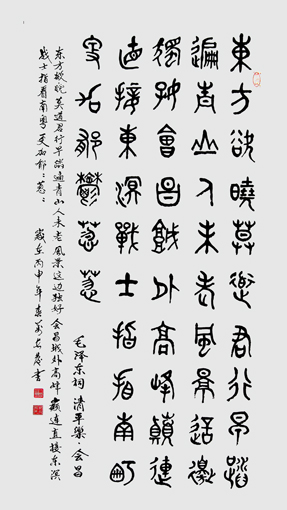 東方欲曉莫道君行早踏
遍青山人未老風景這邊
獨好會昌城外高峰顛連
直接東溟戰士指看南粵
更加郁鬱蔥蔥
毛泽东词 清平樂·会昌
东方欲晓莫道君行早踏遍青山人未老風景这边独好会昌城外高峰巅连直接东溟
战士指看南粤更加郁〻葱〻 岁在丙申年